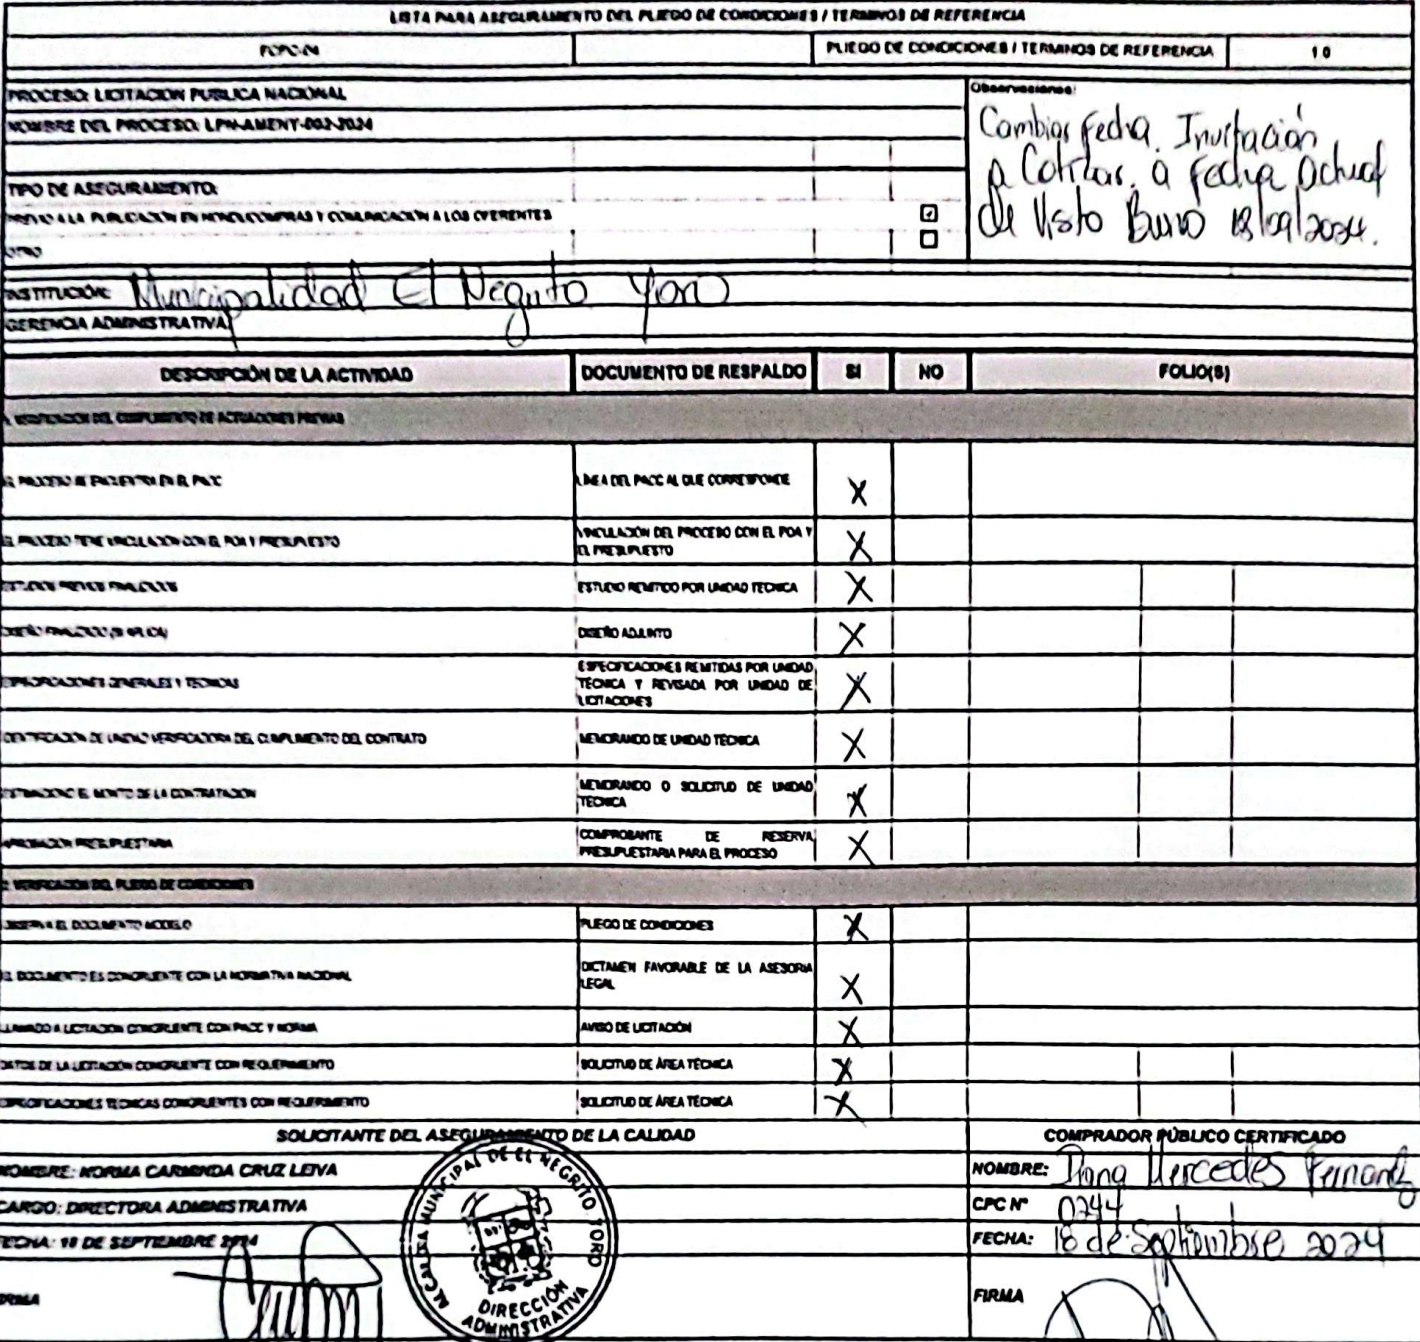 LISTA PARA ASEGURAMIENTO DEL PLIEGO DE CONDICIONES / TERMINOS DE REFERENCIA
PLIEGO DE CONDICIONES / TERMINOS DE REFERENCIA 1 0
PROCESO: LICITACION PUBLICA NACIONAL
Observaciones:
NOMBRE DEL PROCESO: LPN-AMENT-002-2024
Cambiar fecha. Invitación
a Cotizar. a fecha Actual
de Visto Bueno 18/09/2024.
TIPO DE ASEGURAMIENTO:
PREVIO A LA PUBLICACION EN HONDUCOMPRAS Y COMUNICACIÓN A LOS OFERENTES ☑
OTRO ☐
INSTITUCIÓN: Municipalidad El Negrito Yoro
GERENCIA ADMINISTRATIVA
DESCRIPCIÓN DE LA ACTIVIDAD DOCUMENTO DE RESPALDO SI NO FOLIO(S)
1. VERIFICACION DEL CUMPLIMIENTO DE ACTUACIONES PREVIAS
EL PROCESO SE ENCUENTRA EN EL PACC LÍNEA DEL PACC AL QUE CORRESPONDE X
EL PROCESO TIENE VINCULACION CON EL POA Y PRESUPUESTO VINCULACIÓN DEL PROCESO CON EL POA Y EL PRESUPUESTO X
ESTUDIOS PREVIOS FINALIZADOS ESTUDIO REMITIDO POR UNIDAD TECNICA X
DISEÑO FINALIZADO (SI APLICA) DISEÑO ADJUNTO X
ESPECIFICACIONES GENERALES Y TECNICAS ESPECIFICACIONES REMITIDAS POR UNIDAD TÉCNICA Y REVISADA POR UNIDAD DE LICITACIONES X
IDENTIFICACION DE UNIDAD VERIFICADORA DEL CUMPLIMIENTO DEL CONTRATO MEMORANDO DE UNIDAD TÉCNICA X
ESTIMACION EL MONTO DE LA CONTRATACION MEMORANDO O SOLICITUD DE UNIDAD TÉCNICA X
APROBACION PRESUPUESTARIA COMPROBANTE DE RESERVA PRESUPUESTARIA PARA EL PROCESO X
2. VERIFICACION DEL PLIEGO DE CONDICIONES
OBSERVA EL DOCUMENTO MODELO PLIEGO DE CONDICIONES X
EL DOCUMENTO ES CONGRUENTE CON LA NORMATIVA NACIONAL DICTAMEN FAVORABLE DE LA ASESORIA LEGAL X
LLAMADO A LICITACION CONGRUENTE CON PACC Y NORMA AVISO DE LICITACIÓN X
DATOS DE LA LICITACIÓN CONGRUENTE CON REQUERIMIENTO SOLICITUD DE ÁREA TÉCNICA X
ESPECIFICACIONES TECNICAS CONGRUENTES CON REQUERIMIENTO SOLICITUD DE ÁREA TÉCNICA X
SOLICITANTE DEL ASEGURAMIENTO DE LA CALIDAD COMPRADOR PÚBLICO CERTIFICADO
NOMBRE: NORMA CARMINDA CRUZ LEIVA NOMBRE: Mercedes
CARGO: DIRECTORA ADMINISTRATIVA CPC N° 0244
FECHA: 18 DE SEPTIEMBRE 2024 FECHA: 18 de Septiembre 2024
FIRMA FIRMA
ALCALDIA MUNICIPAL DE EL NEGRITO, YORO
DIRECCIÓN
ADMINISTRATIVA